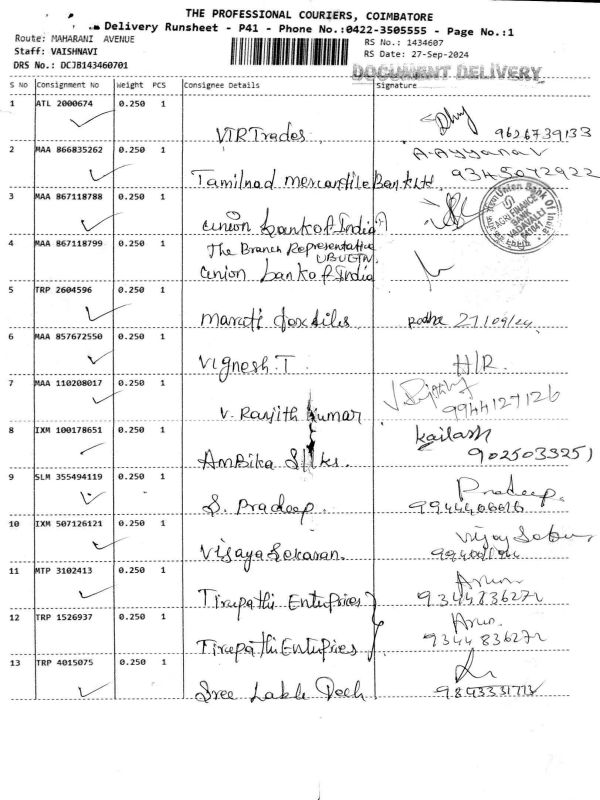 THE PROFESSIONAL COURIERS, COIMBATORE
Delivery Runsheet - P41 - Phone No.:0422-3505555 - Page No.:1
Route: MAHARANI AVENUE
RS No.: 1434607
Staff: VAISHNAVI
RS Date: 27-Sep-2024
DRS No.: DCJB143460701
DOCUMENT DELIVERY
S No Consignment No Weight PCS Consignee Details Signature
1 ATL 2000674 0.250 1
VTR Trades 9626739133
2 MAA 866835262 0.250 1 A. Ayyanar
Tamilnad Mercantile Bank Ltd. 9345072922
3 MAA 867118788 0.250 1
Union Bank of India
Union Bank Of India
AGRI FINANCE
BANK
VADAVALLI
4 MAA 867118799 0.250 1 The Branch Representative
UBUETN.
Union Bank of India
5 TRP 2604596 0.250 1
Maruti Textiles Radha 27/09/24
6 MAA 857672550 0.250 1
Vignesh.T H/R.
7 MAA 110208017 0.250 1
V. Ranjith Kumar 9944127126
8 IXM 100178651 0.250 1 Kailash
Ambika Silks. 9025033251
9 SLM 355494119 0.250 1 Pradeep.
S. Pradeep.
10 IXM 507126121 0.250 1 Vijay
Vijayasekaran.
11 MTP 3102413 0.250 1 Arun
Tirupathi Enterprises 9344836272
12 TRP 1526937 0.250 1 Arun
Tirupathi Enterprises 9344836272
13 TRP 4015075 0.250 1
Sree 9843331773